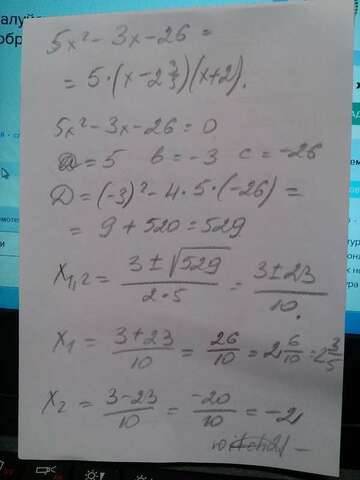 5x² - 3x - 26 =
= 5·(x - 2 3/5)(x+2).
5x² - 3x - 26 = 0
a = 5 b = -3 c = -26
D = (-3)² - 4·5·(-26) =
= 9 + 520 = 529
x₁,₂ = (3 ± √529)/(2·5) = (3 ± 23)/10.
x₁ = (3+23)/10 = 26/10 = 2 6/10 = 2 3/5
x₂ = (3-23)/10 = -20/10 = -2